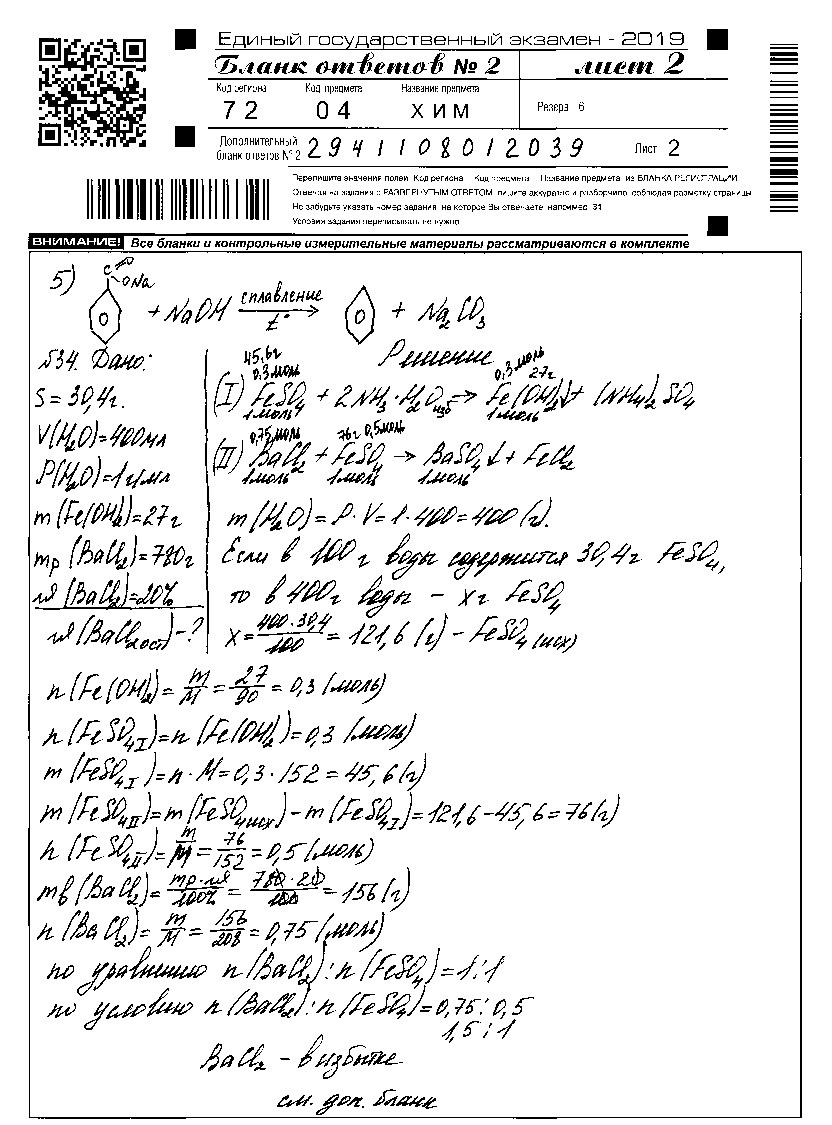 Единый государственный экзамен - 2019
Бланк ответов № 2 лист 2
Код региона Код предмета Название предмета
72 04 ХИМ Резерв - 6
Дополнительный бланк ответов № 2 2941108012039 Лист 2
Перепишите значения полей Код региона Код предмета Название предмета из БЛАНКА РЕГИСТРАЦИИ
Отвечая на задания с РАЗВЕРНУТЫМ ОТВЕТОМ, пишите аккуратно и разборчиво, соблюдая разметку страницы
Не забудьте указать номер задания, на которое Вы отвечаете, например, 31
Условия задания переписывать не нужно
ВНИМАНИЕ! Все бланки и контрольные измерительные материалы рассматриваются в комплекте
5) C=O ONa + NaOH сплавление t° → + Na₂CO₃
№34. Дано:
S = 30,4г.
V(H₂O)=400мл
P(H₂O)=1г/мл
m(Fe(OH)₂)=27г
mр(BaCl₂)=780г
w(BaCl₂)=20%
w(BaCl₂ ост)-?
Решение
45,6г 0,3моль 0,3моль 27г
(I) FeSO₄ + 2NH₃·H₂Oизб → Fe(OH)₂↓ + (NH₄)₂SO₄
1моль 1моль
0,75моль 76г 0,5моль
(II) BaCl₂ + FeSO₄ → BaSO₄↓ + FeCl₂
1моль 1моль 1моль
m(H₂O)=P·V=1·400=400(г).
Если в 100г воды содержится 30,4г FeSO₄,
то в 400г воды - xг FeSO₄
X = 400·30,4/100 = 121,6(г) - FeSO₄(исх)
n(Fe(OH)₂)= m/M = 27/90 = 0,3 (моль)
n(FeSO₄I)=n(Fe(OH)₂)=0,3 (моль)
m(FeSO₄I)=n·M=0,3·152=45,6(г)
m(FeSO₄II)=m(FeSO₄исх)-m(FeSO₄I)=121,6-45,6=76(г)
n(FeSO₄II)= m/M = 76/152 = 0,5 (моль)
mв(BaCl₂)= mр·w/100% = 780·20/100 = 156(г)
n(BaCl₂)= m/M = 156/208 = 0,75 (моль)
по уравнению n(BaCl₂):n(FeSO₄)=1:1
по условию n(BaCl₂):n(FeSO₄)=0,75:0,5
1,5:1
BaCl₂ - в избытке
см. доп. бланк